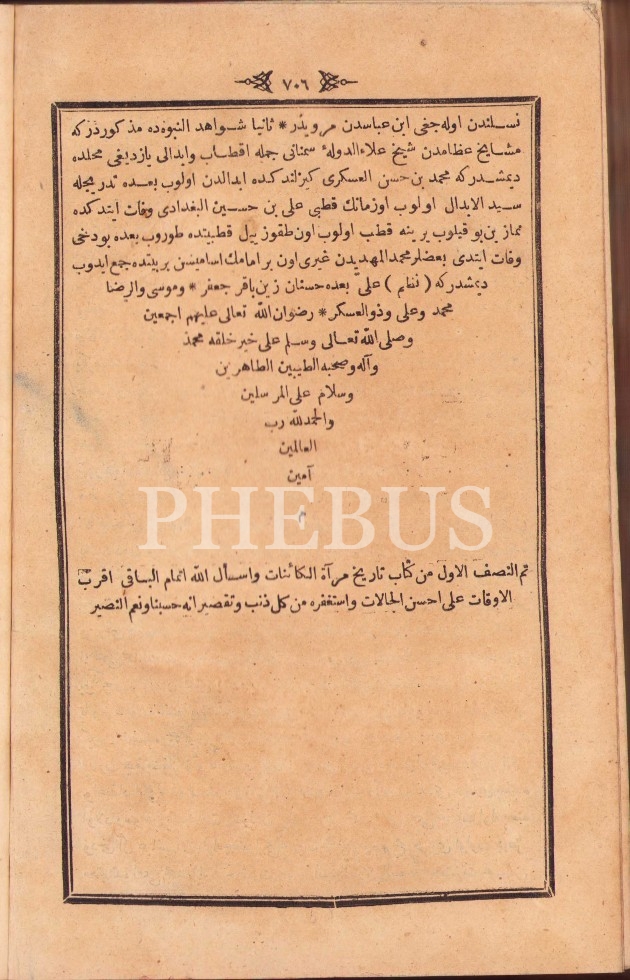 ٧٠٦
نسلندن اوله جغی ابن عباسدن مرویدر * ثانیا شواهد النبوه ده مذکوردرکه
مشایخ عظامدن شیخ علاء الدولهٔ سمنانی جمله اقطاب وابدالی یازدیغی محلده
دیمشدرکه محمد بن حسن العسکری کیزلندکده ابدالدن اولوب بعده تدریجله
سید الابدال اولوب اوزمانك قطبی علی بن حسین البغدادی وفات ایتدکده
نمازین بو قیلوب یرینه قطب اولوب اون طقوز ییل قطبیتده طوروب بعده بودخی
وفات ایتدی بعضلر محمد المهدیدن غیری اون بر امامك اسامیسن بر بیتده جمع ایدوب
دیمشدرکه ( نظم ) علی بعده حسنان زین باقر جعفر * وموسی والرضا
محمد وعلی وذو العسکر * رضوان الله تعالی علیهم اجمعین
وصلی الله تعالی وسلم علی خیر خلقه محمد
وآله وصحبه الطیبین الطاهرین
وسلام علی المرسلین
والحمد لله رب
العالمین
آمین
م
PHEBUS
تم النصف الاول من کتاب تاریخ مرآة الکائنات واسأل الله اتمام الباقی اقرب
الاوقات علی احسن الحالات واستغفره من کل ذنب وتقصیر انه حسبنا ونعم النصیر